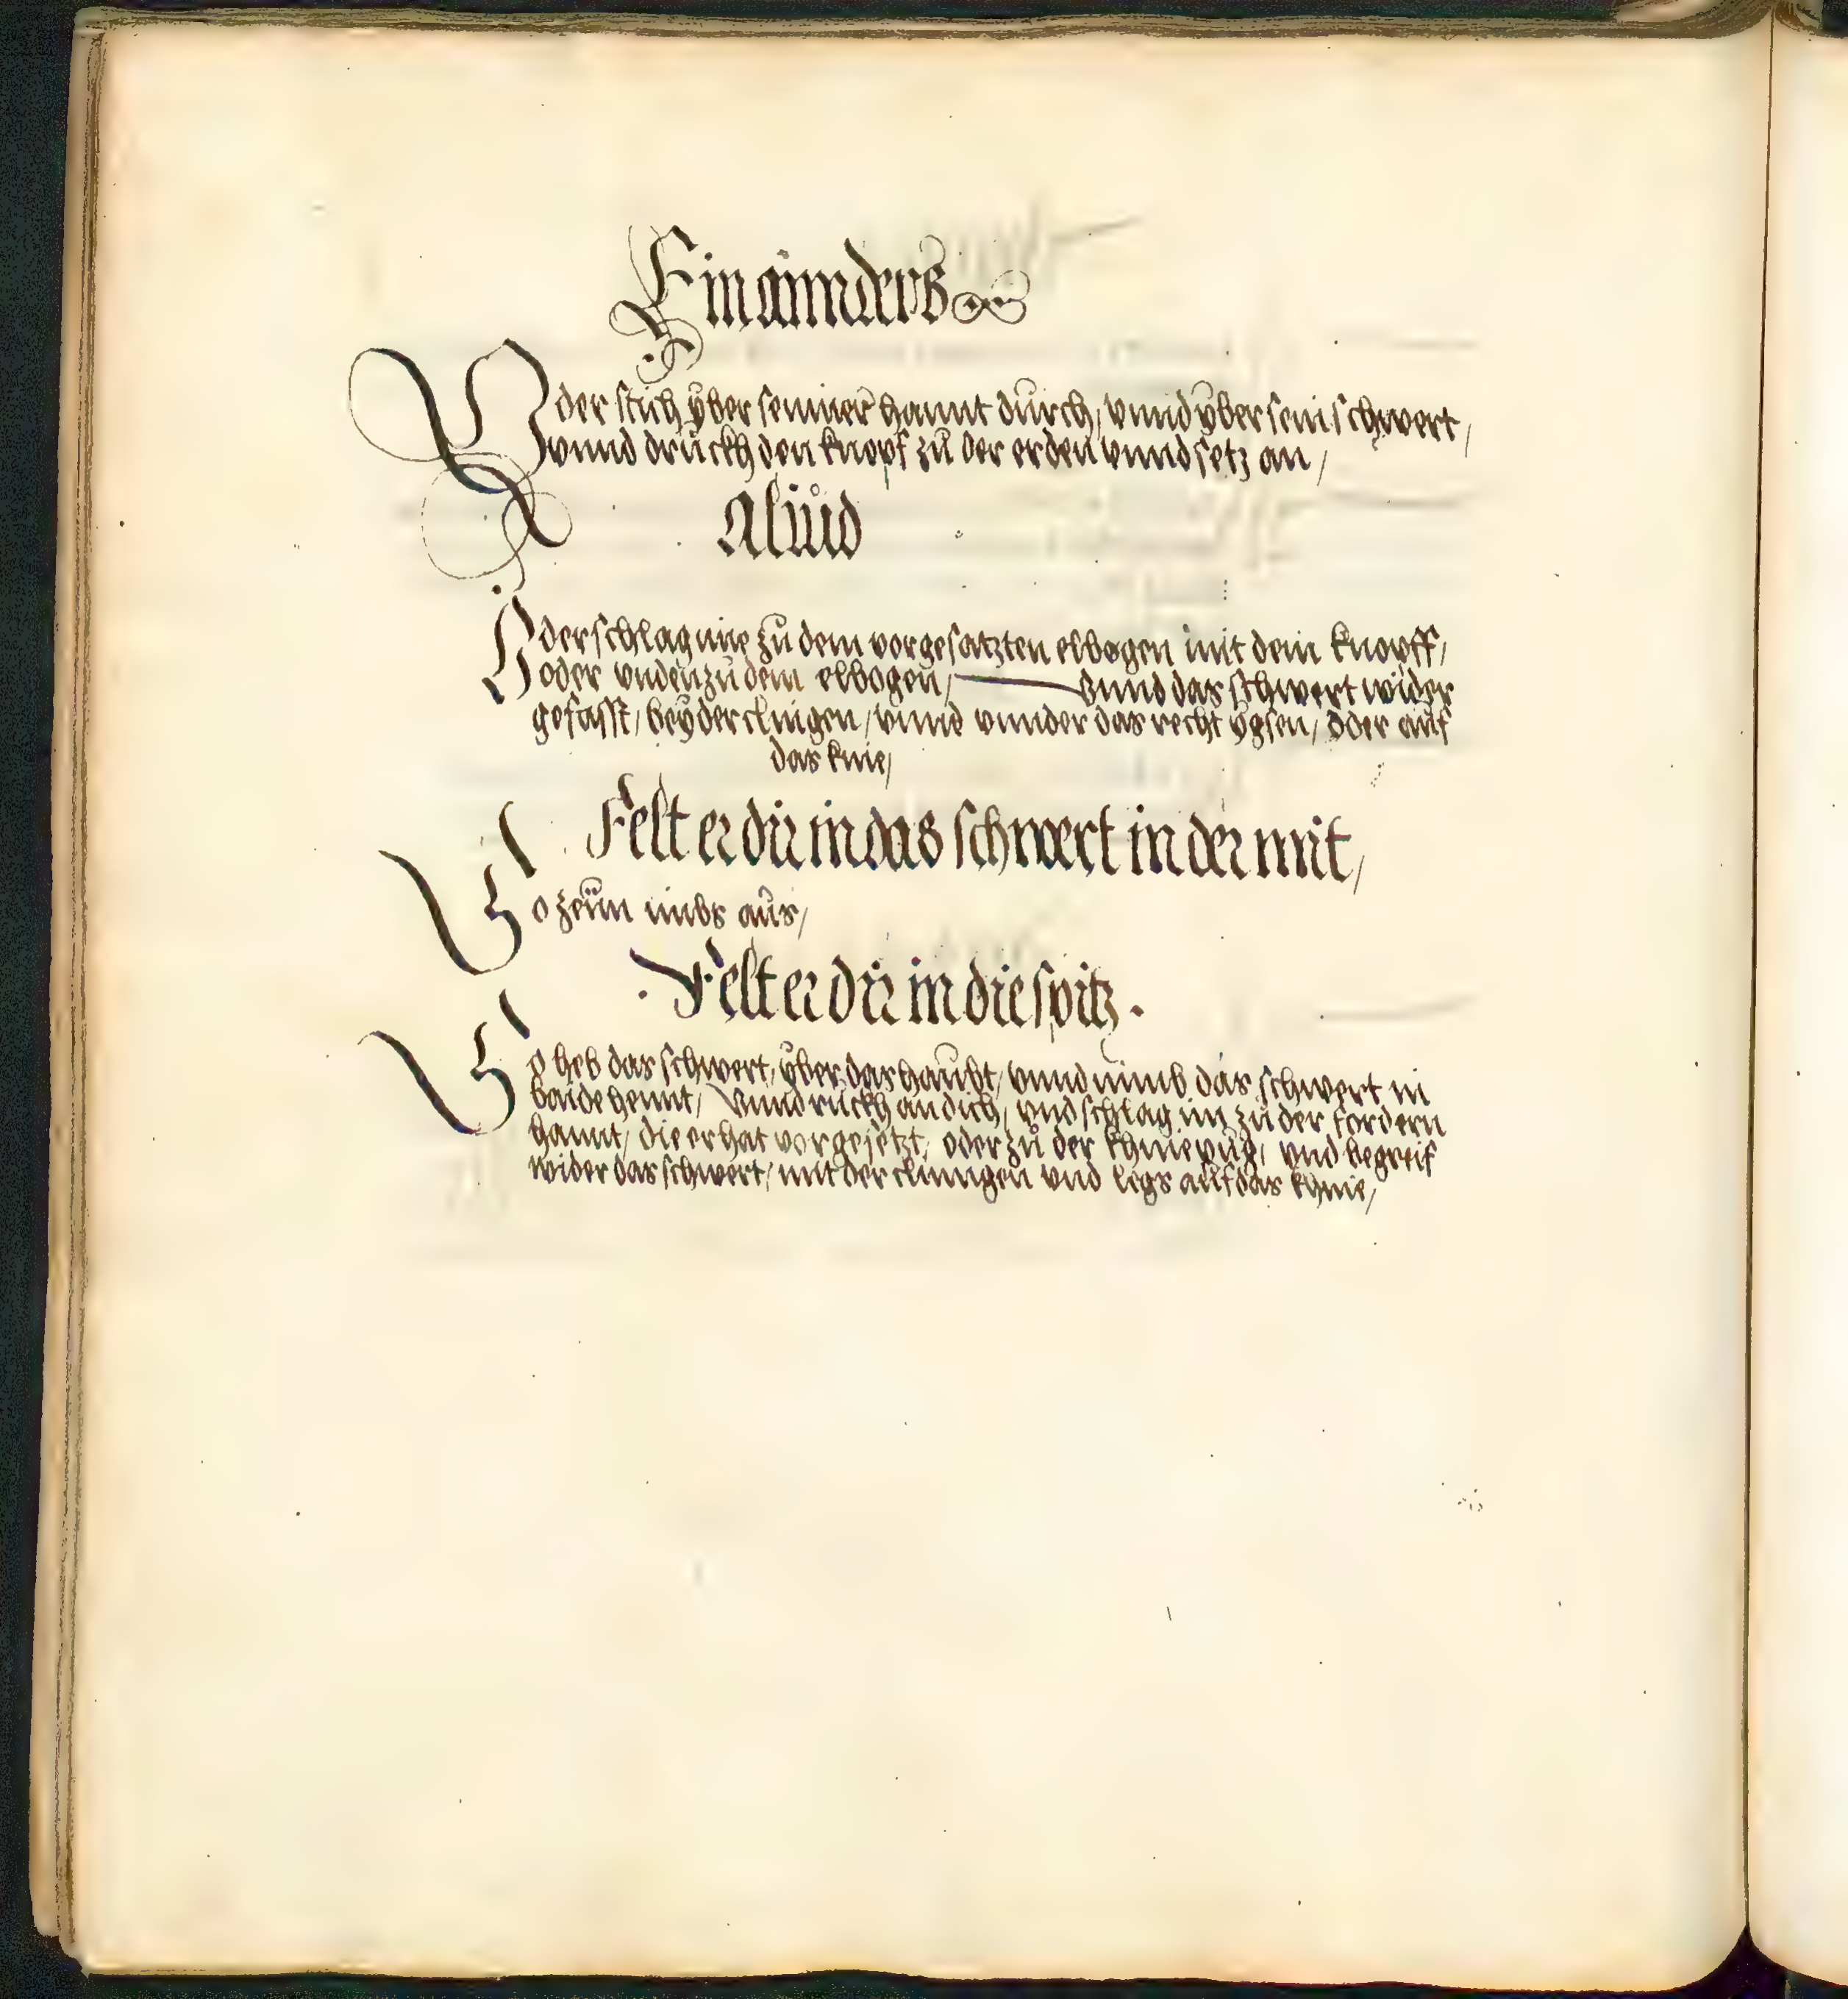 Ein annders
Oder stich yber seinner hannt durch, vnnd yber sein schwert,
vnnd druckh den knopf zů der erden vnnd setz an,
Aliůd
Oder schlag ime zů dem vorgesatzten elbogen mit dem knopff,
oder vnden zů dem elbogen, vnnd das schwert wider
gefasst, bey der clingen, vnnd vnnder das recht ÿgsen, oder auf
das knie,
Felt er dir in das schwert in der mit,
So zeün imbs aus,
Felt er dir in die spitz.
So heb das schwert, yber das haubt, vnnd nimb das schwert in
baide hennt, Vnnd ruckh an dich, vnd schlag im zů der fordern
hannt, die er hat vorgesetzt, oder zů der khniepüg, vnd begreif
wider das schwert, mit der clinngen vnd legs auf das khnie,